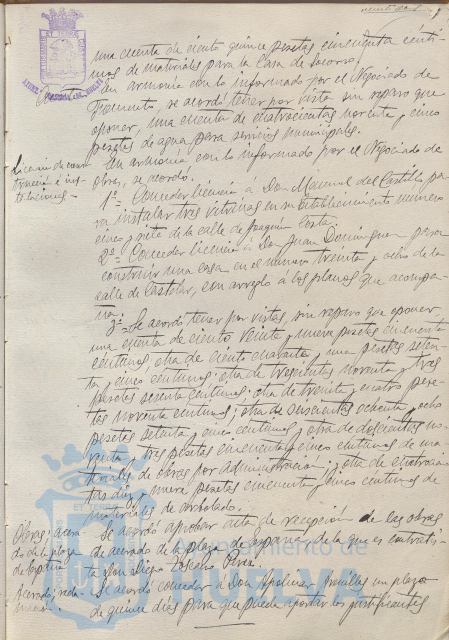 una cuenta de ciento quince pesetas cincuenta cénti-
mos de materiales para la Casa de Socorro.
En armonía con lo informado por el Negociado de
Fomento, se acordó tener por vista sin reparo que
oponer, una cuenta de cuatrocientas noventa y cinco
pesetas de agua para servicios municipales.
Licencia de cons-
trucción é ins-
talaciones.-
En armonía con lo informado por el Negociado de
obras, se acordó.
1º = Conceder licencia á Don Manuel del Castillo pa-
ra instalar tres vitrinas en su establecimiento número
cinco y siete de la calle de Joaquín Costa.
2º = Conceder licencia á Don Juan Domínguez para
construir una casa en el número treinta y ocho de la
calle de Castelar, con arreglo á los planos que acompa-
ña.
3º = Se acordó tener por vistas, sin reparo que oponer,
una cuenta de ciento veinte y nueve pesetas cincuenta
céntimos; otra de ciento cuarenta y una pesetas seten-
ta y cinco céntimos; otra de trescientas noventa y tres
pesetas sesenta céntimos; otra de treinta y cuatro pese-
tas noventa céntimos; otra de doscientas ochenta y ocho
pesetas setenta y cinco céntimos y otra de doscientas no-
venta y tres pesetas cincuenta y cinco céntimos de ma-
teriales de obras por administración; y otra de cuatrocien-
tas diez y nueve pesetas cincuenta y cinco céntimos de
materiales de arbolado.
Obras; acera-
do de la plaza
de España
Se acordó aprobar acta de recepción de las obras
de acerado de la plaza de España de la que es contratis-
ta Don Diego Toscano Pérez.
Acerado;
Se acordó conceder á Don Apolinar un plazo
de quince días para que pueda aportar los justificantes
Ayuntamiento de
HUELVA